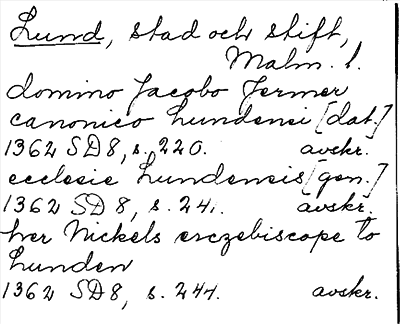 Lund, stad och stift,
Malm. l.
domino Jacobo Fermer
canonico Lundensi [dat.]
1362 SD 8, s. 220. avskr.
ecclesie Lundensis [gen.]
1362 SD 8, s. 241. avskr.
her Nickels erczebiscope to
Lunden
1362 SD 8, s. 244. avskr.